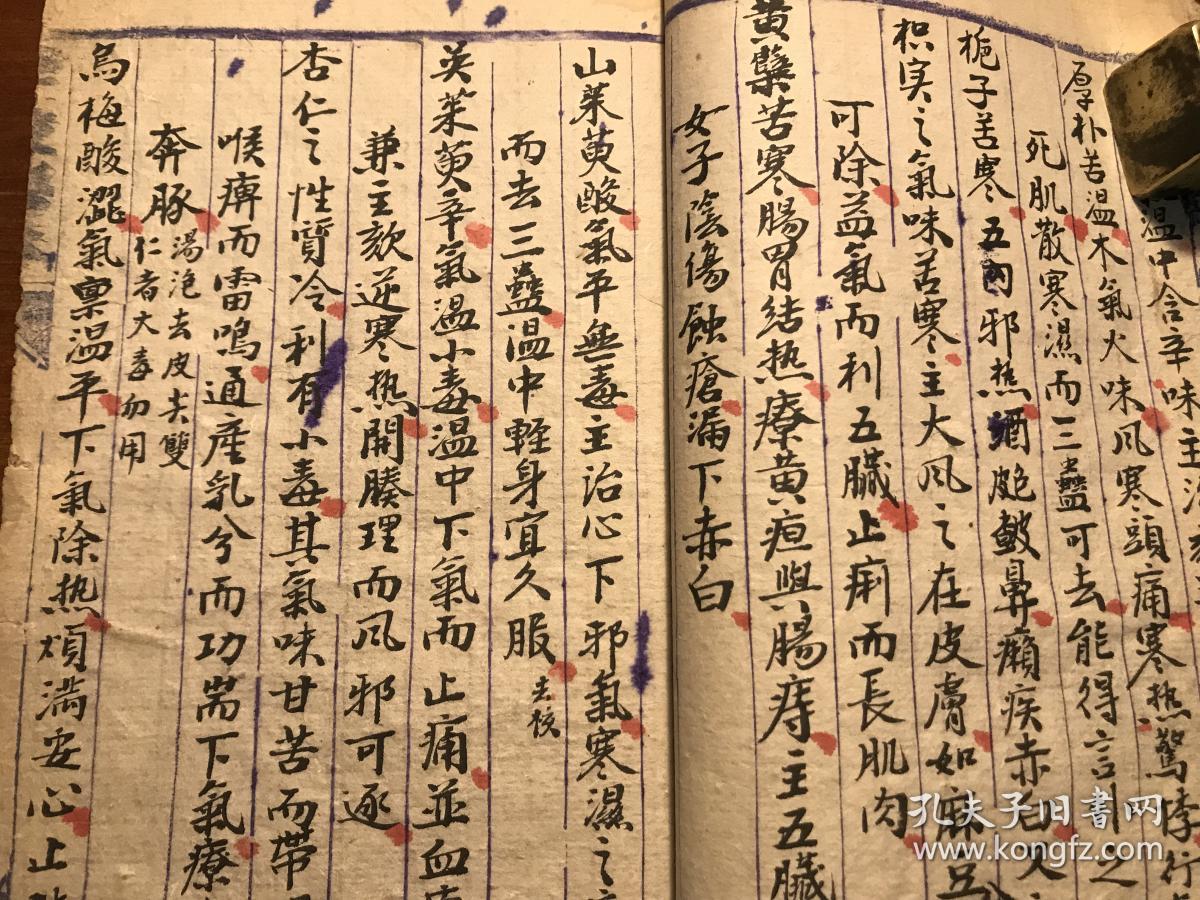 温中含辛味主治
厚朴苦温木氣火味风寒頭痛寒热驚悸行
死肌散寒濕而三蠱可去能得言引之
栀子苦寒五内邪热酒皰皷鼻癩疾赤
枳实之氣味苦寒主大风之在皮膚如麻豆
可除益氣而利五臓止痢而長肌肉
黄櫱苦寒腸胃结热療黄疸與腸痔主五臓
女子陰傷蝕瘡漏下赤白
山茱萸酸氣平無毒主治心下邪氣寒濕之
而去三蠱温中輕身宜久服
去核
英茱萸辛氣温小毒温中下氣而止痛並血
兼主欬逆寒热開腠理而风邪可逐
杏仁之性質冷利有小毒其氣味甘苦而帶
喉痹而雷鳴通産乳兮而功耑下氣療
奔豚
湯泡去皮尖雙
仁者大毒勿用
烏梅酸澀氣禀温平下氣除热煩满安心止
孔夫子旧書网
www.kongfz.com